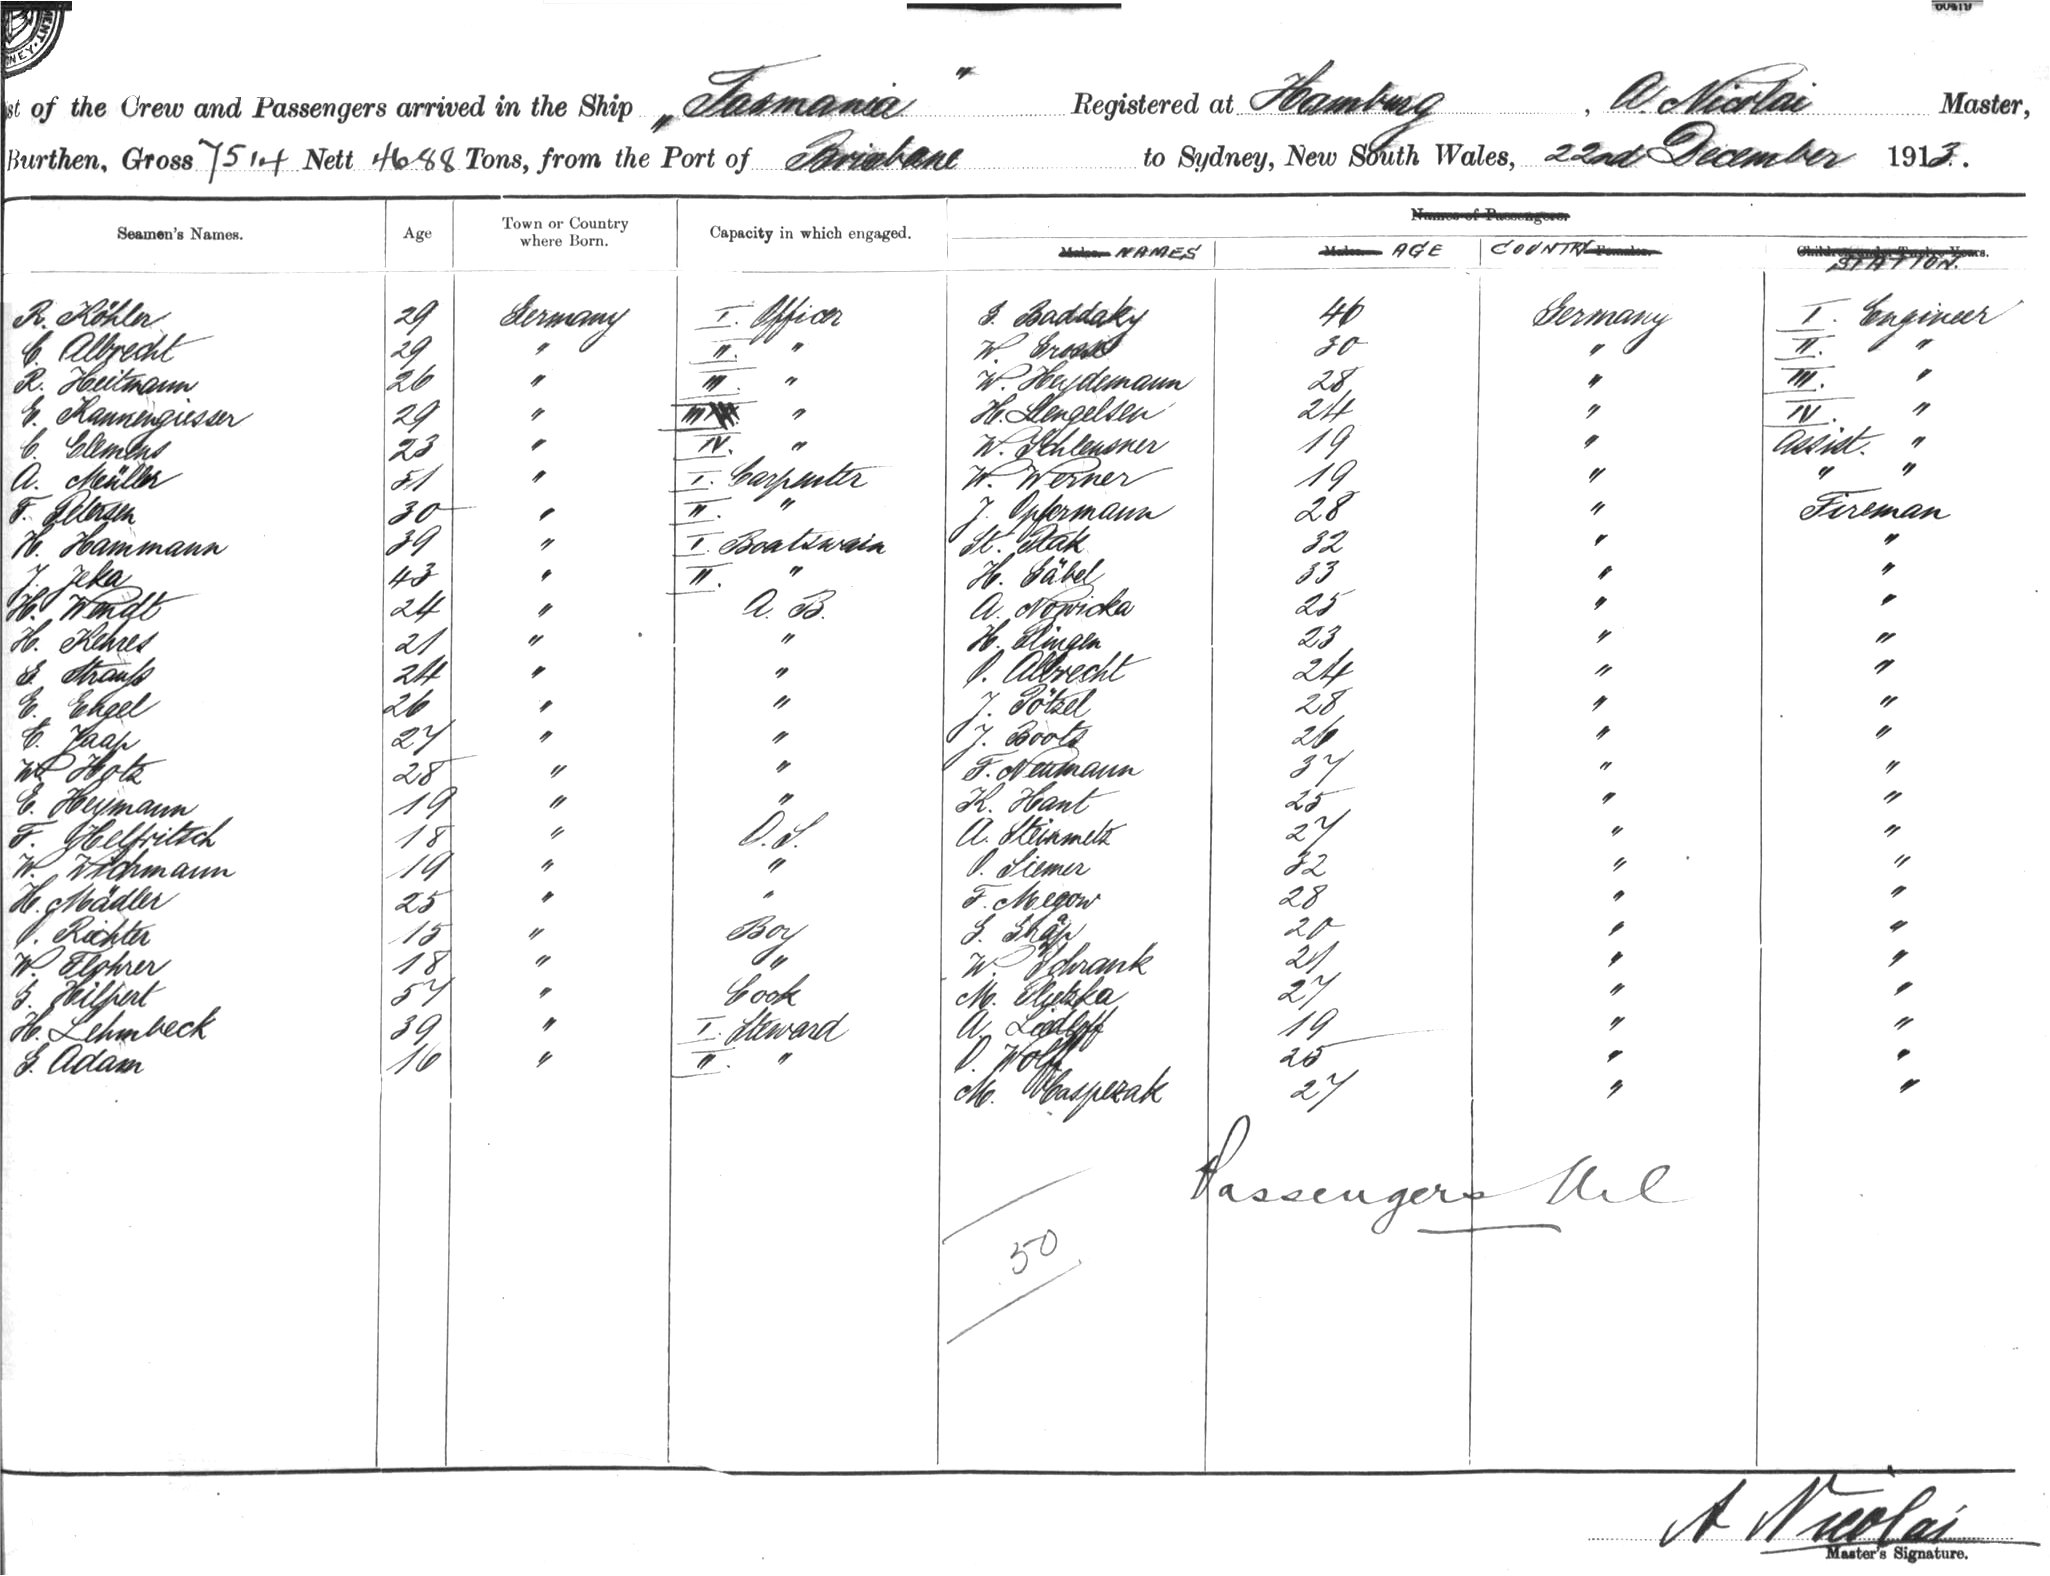 st of the Crew and Passengers arrived in the Ship „Tasmania" Registered at Hamburg, A. Nicolai Master,
Burthen, Gross 7514 Nett 4688 Tons, from the Port of Brisbane to Sydney, New South Wales, 22nd December 1913.
Names of Passengers.
Seamen's Names. Age Town or Country where Born. Capacity in which engaged. Males. NAMES Males. AGE COUNTRY Females. Children under Twelve Years. STATION.
R. Köhler 29 Germany I. Officer G. Baddaky 40 Germany I. Engineer
C. Albrecht 29 " II. " W. Grosse 30 " II. "
R. Heitmann 26 " III. " W. Heydemann 28 " III. "
E. Kannengiesser 29 " III " H. Stengelsen 24 " IV. "
C. Clemens 23 " IV. " W. Schleusner 19 " Assist. "
A. Müller 51 " I. Carpenter W. Werner 19 " " "
F. Petersen 30 " II. " J. Opfermann 28 " Fireman
H. Hammann 39 " I. Boatswain St. Ptak 32 " "
J. Jeka 43 " II. " H. Gäbel 33 " "
H. Wendt 24 " A. B. A. Nowicka 25 " "
H. Kehres 21 " " H. Plingen 23 " "
G. Strauß 24 " " O. Albrecht 24 " "
E. Engel 26 " " J. Götzel 28 " "
E. Jaap 27 " " J. Boots 26 " "
W. Hotz 28 " " F. Neumann 37 " "
E. Heymann 19 " " K. Hant 25 " "
F. Helfritsch 18 " O. S. A. Steinmetz 27 " "
W. Wichmann 19 " " O. Siemer 32 " "
H. Mädler 25 " " F. Megow 28 " "
O. Richter 15 " Boy G. 20 " "
W. Flohrer 18 " " W. Schrank 21 " "
G. Hilpert 57 " Cook M. 27 " "
H. Lehmbeck 39 " I. Steward A. Liedloff 19 " "
G. Adam 16 " II. " O. Wolff 25 " "
M. Kasperzak 27 " "
Passengers Nil
50
A Nicolai
Master's Signature.